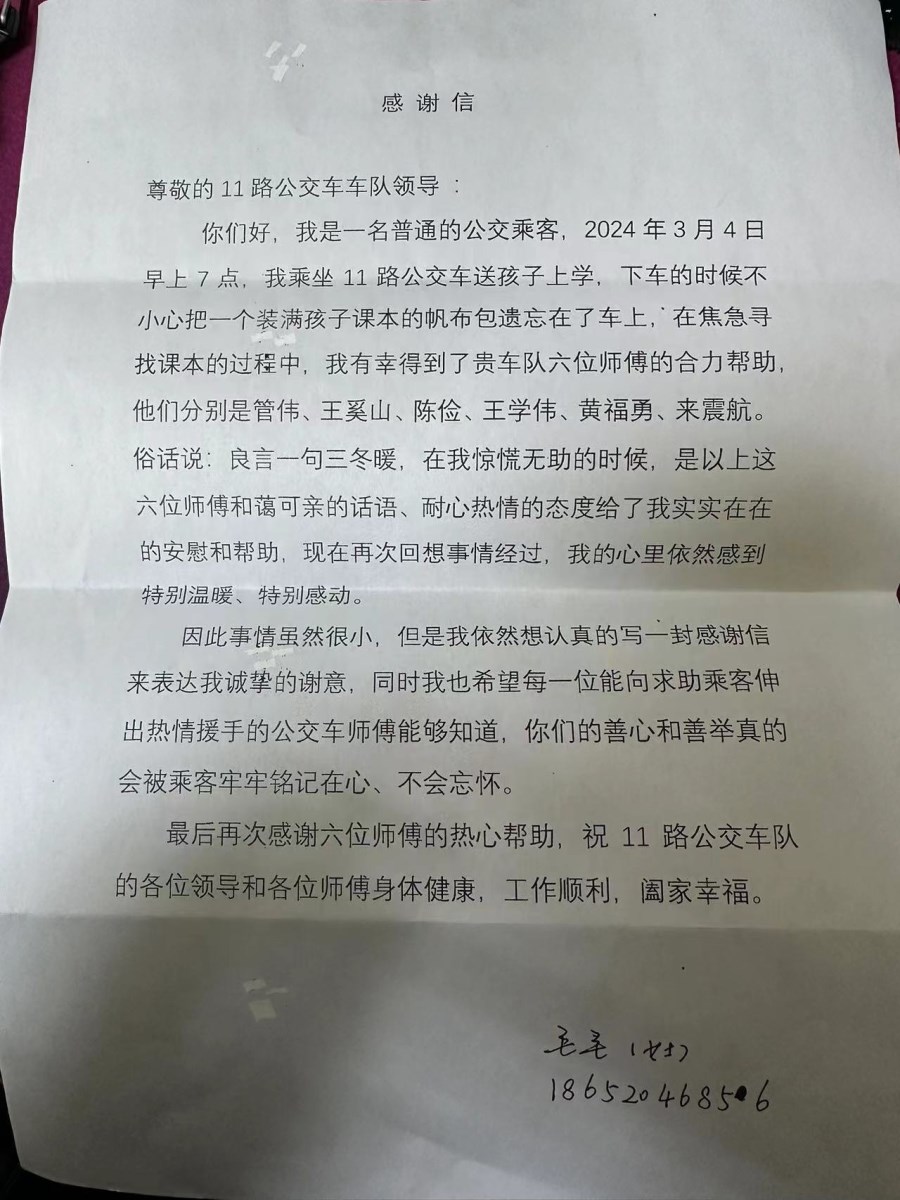 感谢信
尊敬的 11 路公交车车队领导：
你们好，我是一名普通的公交乘客，2024 年 3 月 4 日
早上 7 点，我乘坐 11 路公交车送孩子上学，下车的时候不
小心把一个装满孩子课本的帆布包遗忘在了车上，在焦急寻
找课本的过程中，我有幸得到了贵车队六位师傅的合力帮助，
他们分别是管伟、王奚山、陈俭、王学伟、黄福勇、来震航。
俗话说：良言一句三冬暖，在我惊慌无助的时候，是以上这
六位师傅和蔼可亲的话语、耐心热情的态度给了我实实在在
的安慰和帮助，现在再次回想事情经过，我的心里依然感到
特别温暖、特别感动。
因此事情虽然很小，但是我依然想认真的写一封感谢信
来表达我诚挚的谢意，同时我也希望每一位能向求助乘客伸
出热情援手的公交车师傅能够知道，你们的善心和善举真的
会被乘客牢牢铭记在心、不会忘怀。
最后再次感谢六位师傅的热心帮助，祝 11 路公交车队
的各位领导和各位师傅身体健康，工作顺利，阖家幸福。
(女士)
186520468506